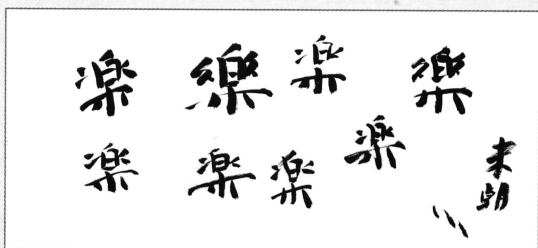 楽 樂 楽 樂
楽 楽 楽 楽